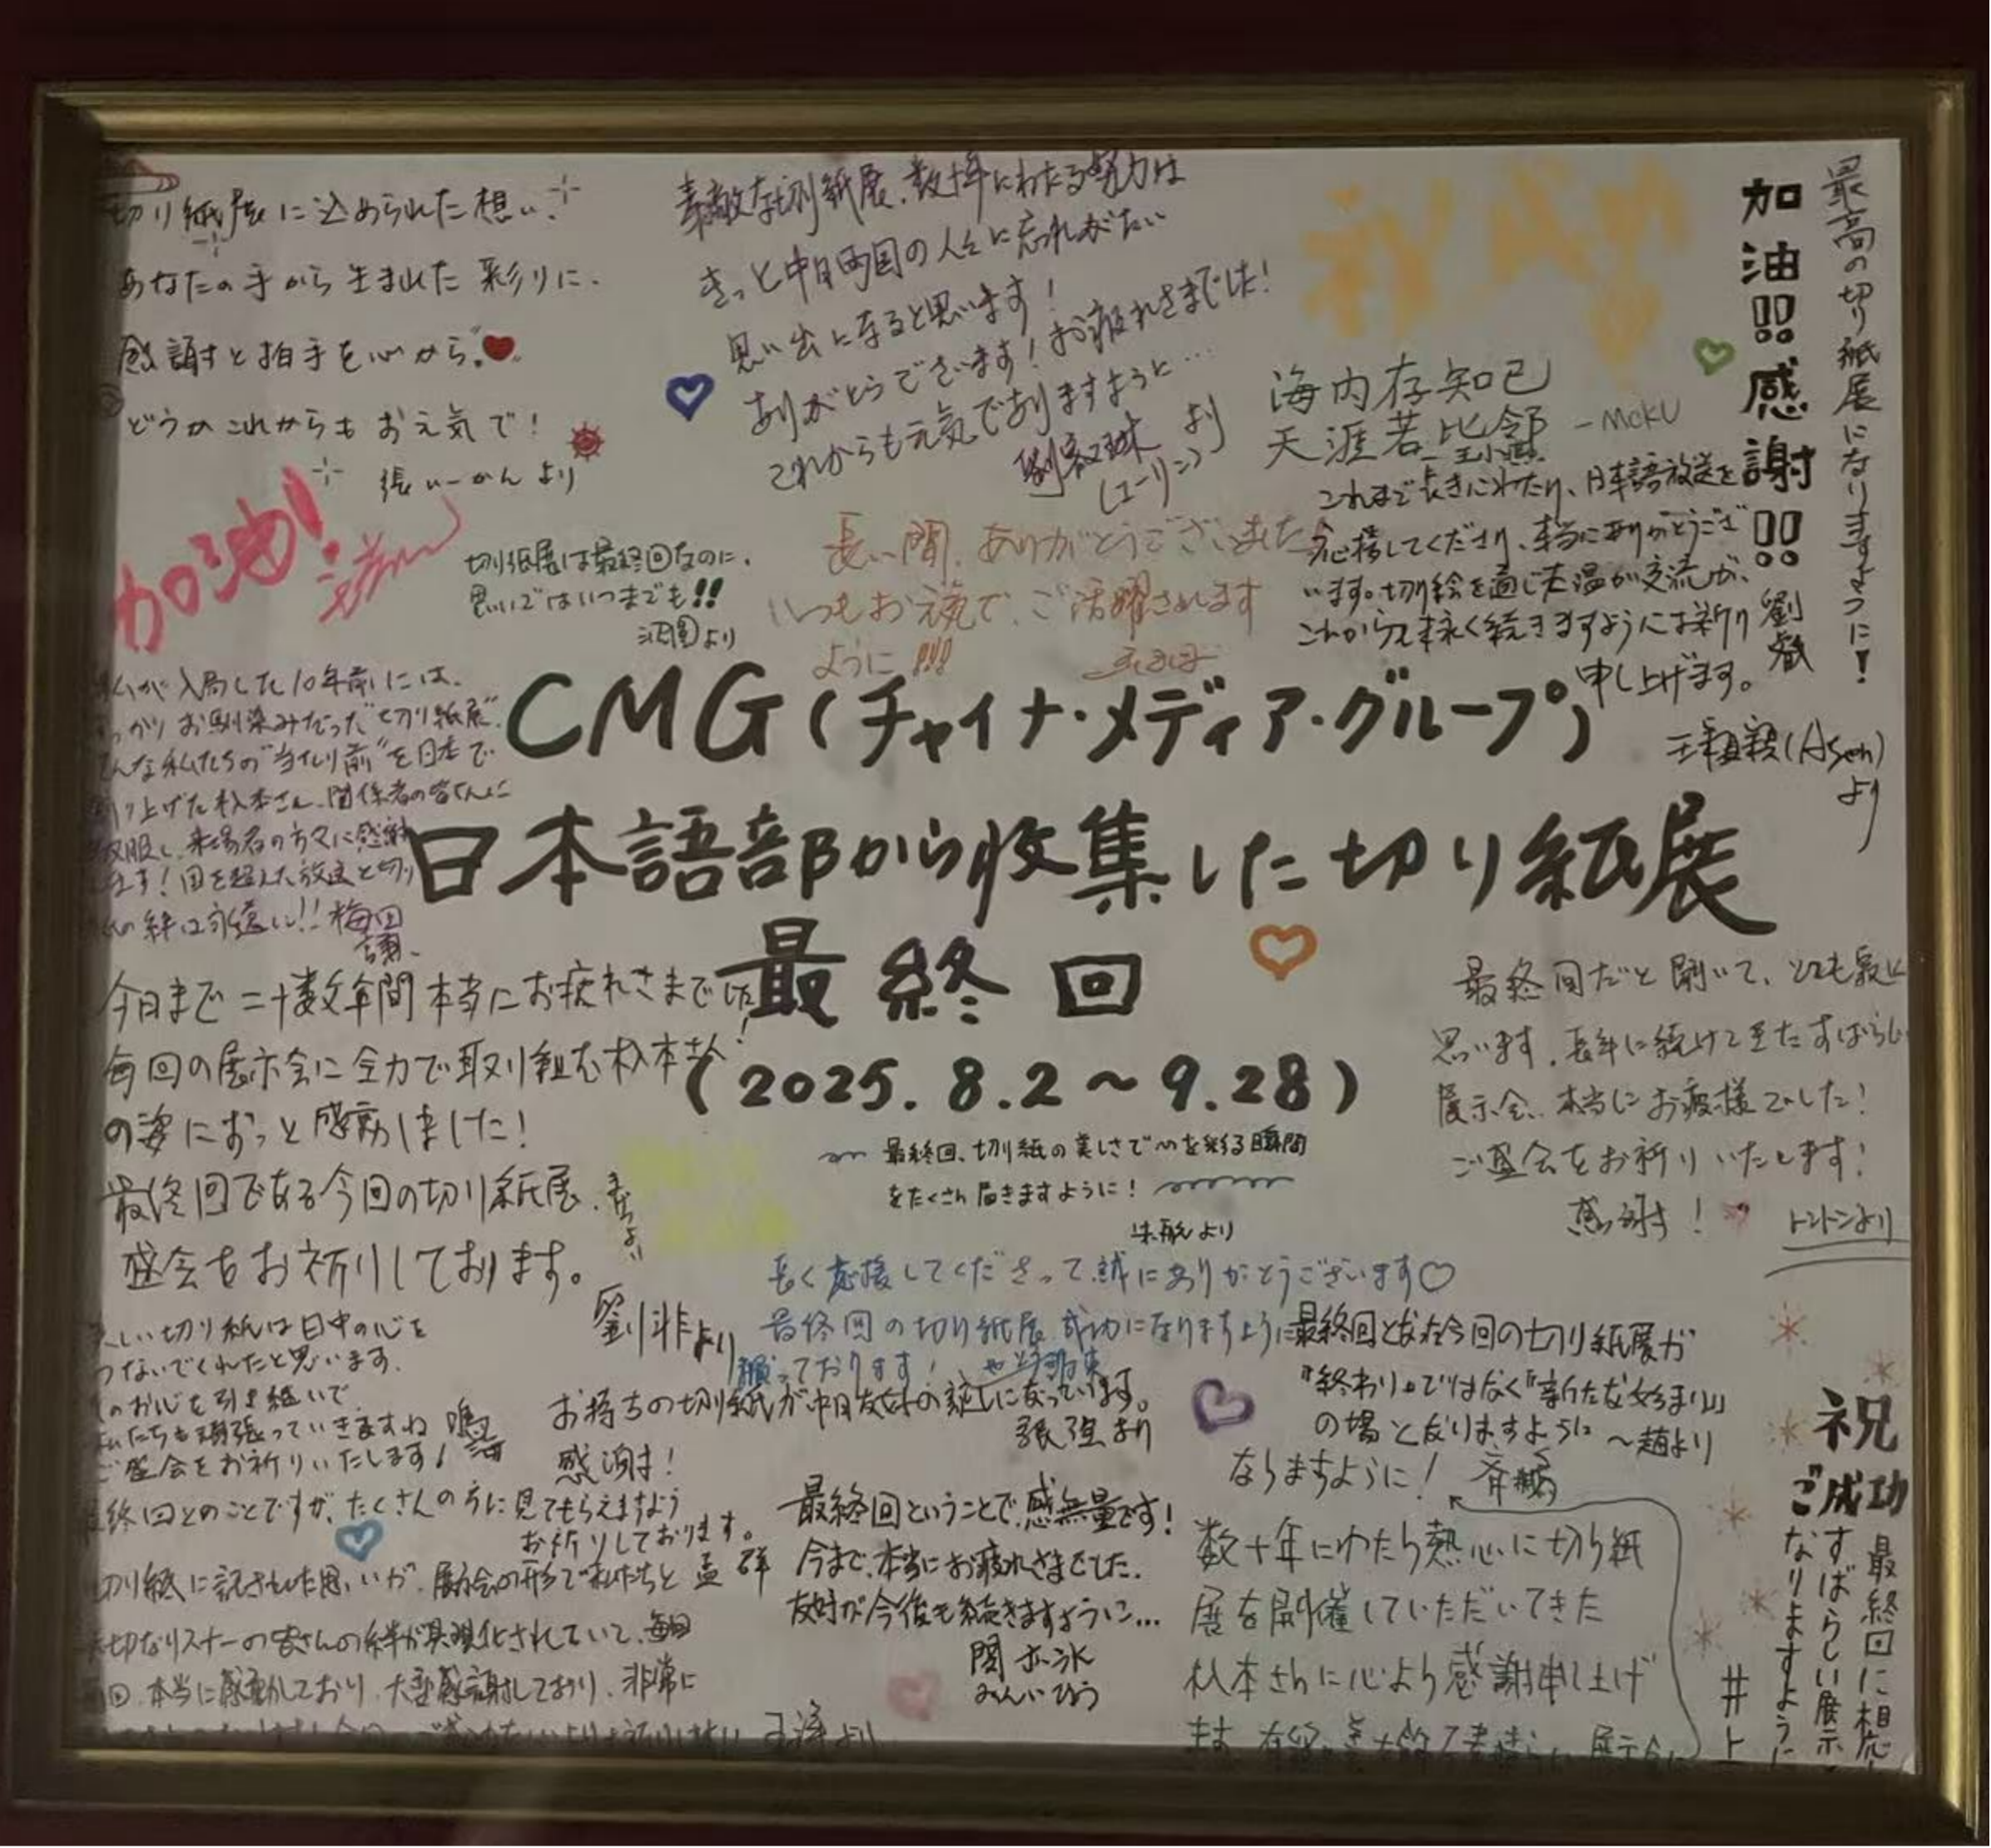 切り紙展に込められた想い、
あなたの手から生まれた彩りに、
感謝と拍手を心から。
どうかこれからもお元気で！
張いーかんより
加油！
素敵な切り紙展、数十年にわたる努力は
きっと中日両国の人々に忘れがたい
思い出になると思います！
ありがとうございます！お疲れさまでした！
これからも元気でありますようと…
劉叡琳より
(ユーリン)
祝成功
海内存知己
天涯若比邻 - MCKU
加油!!感謝!!劉叡
最高の切り紙展になりますように！
切り紙展は最終回なのに、
思いではいつまでも!!
より
長い間、ありがとうございました
いつもお元気で、ご活躍されます
ように!!!
これまで長きにわたり、日本語放送を
応援してくださり、本当にありがとうござ
います。切り絵を通じた温か交流が、
これからも末永く続きますようにお祈り
申し上げます。
(Asen)
より
私が入局した10年前には、
すっかりお馴染みだった"切り紙展"。
そんな私たちの"当たり前"を日本で
創り上げた杉本さん、関係者の皆さんに
敬服し、来場者の方々に感謝
します！国を超えた放送と切り
紙の絆は永遠に!! 梅田
謙
CMG(チャイナ・メディア・グループ)
日本語部から収集した切り紙展
最終回
(2025.8.2～9.28)
今日まで二十数年間本当にお疲れさまでした！
毎回の展示会に全力で取り組む杉本さん
の姿にずっと感動しました！
最終回である今回の切り紙展、
盛会をお祈りしております。
劉非より
最終回だと聞いて、とても
思います。長年に続けて来たすばらしい
展示会、本当にお疲れ様でした！
ご盛会をお祈りいたします！
感謝す！
トントンより
最終回、切り紙の美しさで心を彩る瞬間
をたくさん届きますように！
より
長く応援してくださって誠にありがとうございます♡
最終回の切り紙展、成功になりますように
願っております！
美しい切り紙は日中の心を
つないでくれたと思います。
そのお心を引き継いで、
私たちも頑張っていきますね 鳴海
ご盛会をお祈りいたします！
お持ちの切り紙が中日友好の証しになっています。
感謝す！
張強より
最終回となった今回の切り紙展が
『終わり』ではなく『新たな始まり』
の場となりますように ～趙より
最終回とのことですが、たくさんの方に見てもらえますよう
お祈りしております。
孟群
最終回ということで、感無量です！
今まで、本当にお疲れさまでした。
友好が今後も続きますように…
閔亦氷
みんいひょう
切り紙に託された思いが、展示会の形で私たちと
大切なリスナーの皆さんの絆が具現化されていて、毎回
毎回、本当に感動しており、大変感謝しており、非常に
より
数十年にわたら熱心に切ら紙
展を開催していただいてきた
杉本さんに心より感謝申し上げ
ます。
なりますように！斉鵬
祝
ご成功
最終回に相応
すばらしい展示
なりますように
井上